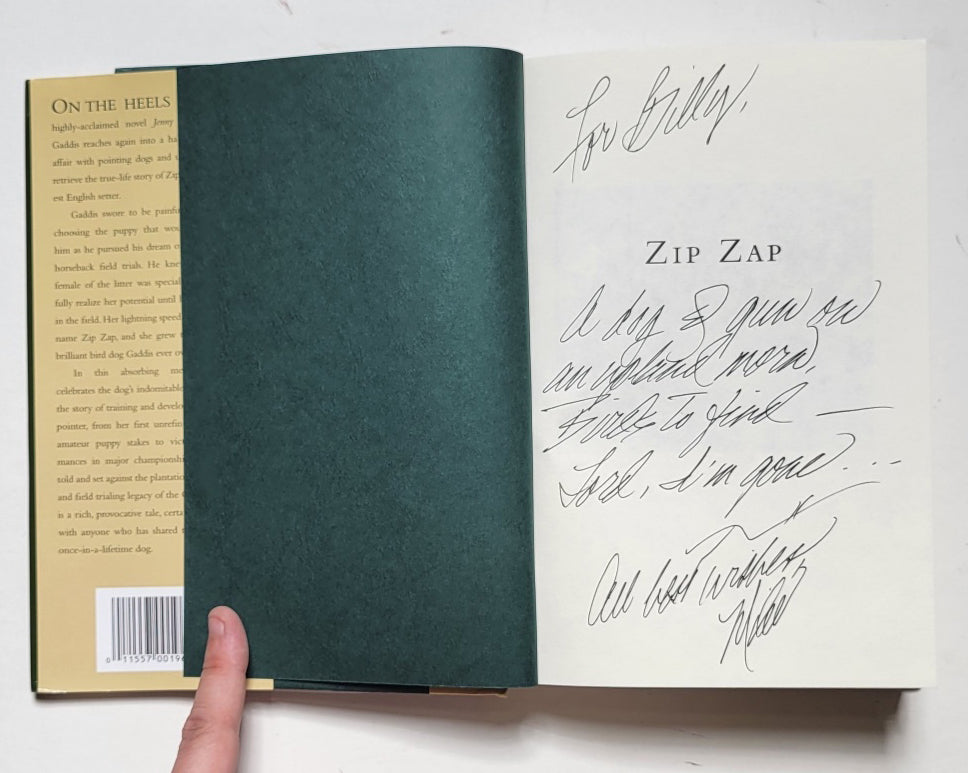 ON THE HEELS
highly-acclaimed novel Jenny
Gaddis reaches again into a ha
affair with pointing dogs and
retrieve the true-life story of Zip
est English setter.
Gaddis swore to be painfu
choosing the puppy that wou
him as he pursued his dream o
horseback field trials. He knew
female of the litter was special
fully realize her potential until
in the field. Her lightning speed
name Zip Zap, and she grew
brilliant bird dog Gaddis ever ow
In this absorbing me
celebrates the dog's indomitable
the story of training and develo
pointer, from her first unrefin
amateur puppy stakes to vic
mances in major championshi
told and set against the plantatio
and field trialing legacy of the
is a rich, provocative tale, certa
with anyone who has shared
once-in-a-lifetime dog.
0 11557 00196
For Billy,
ZIP ZAP
A dog & gun on
an upland morn,
Birds to find —
Lord, I'm gone...
All best wishes,
Mike